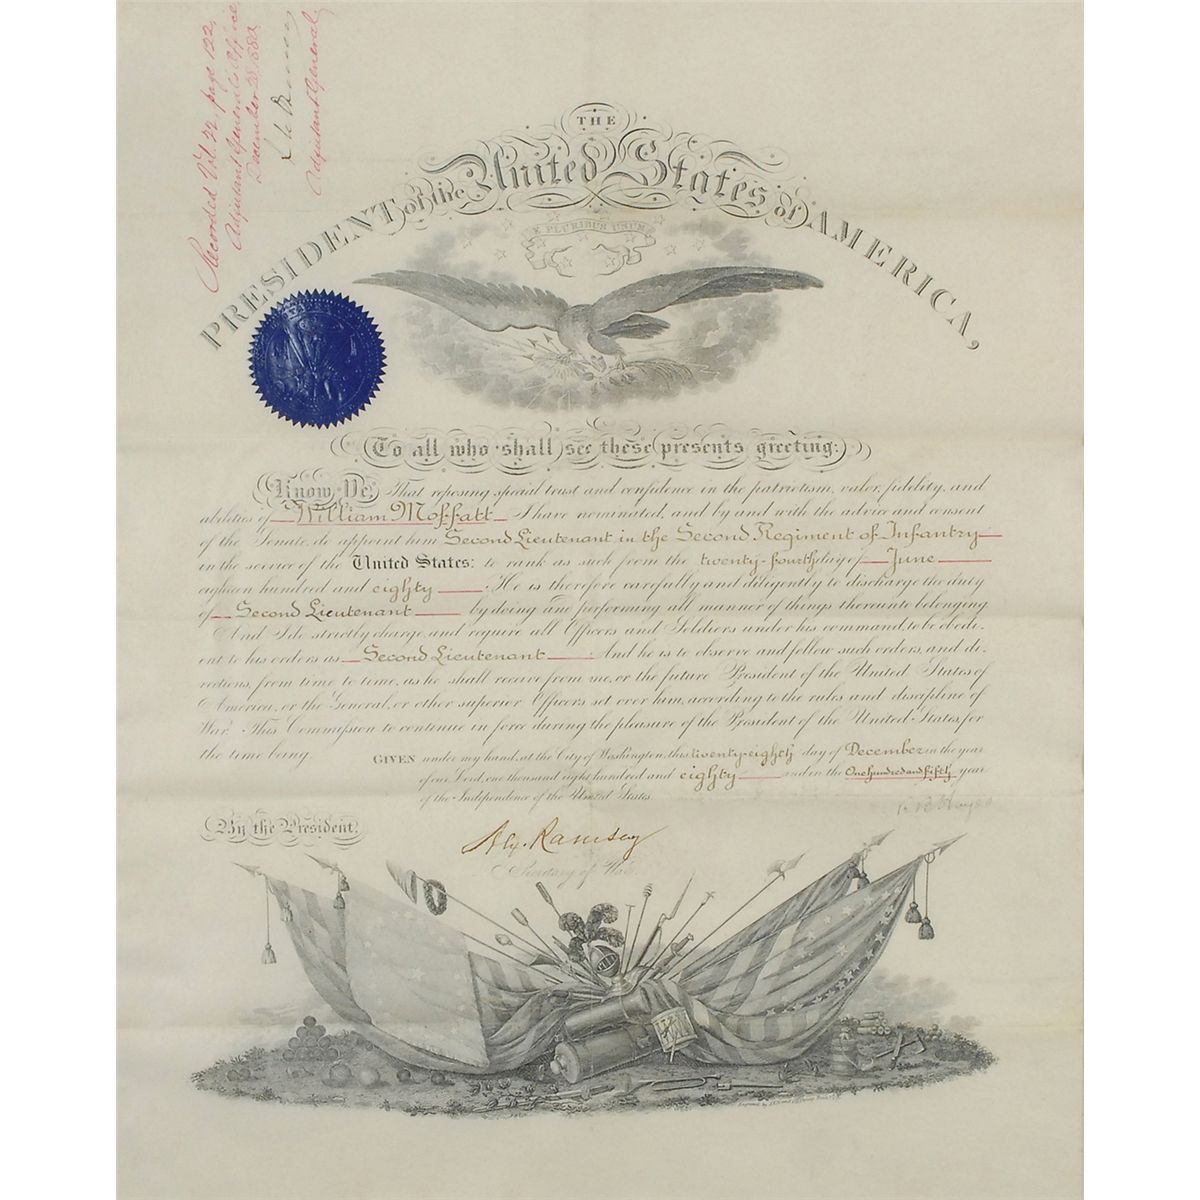 Recorded Vol. 22, page 122,
Adjutant General's Office
December 28, 1880
Adjutant General
THE
PRESIDENT of the United States of AMERICA,
E PLURIBUS UNUM
To all who shall see these presents greeting:
Know Ye, That reposing special trust and confidence in the patriotism, valor, fidelity, and
abilities of William Moffatt I have nominated, and by and with the advice and consent
of the Senate, do appoint him Second Lieutenant in the Second Regiment of Infantry
in the service of the United States: to rank as such from the twenty-fourth day of June
eighteen hundred and eighty. He is therefore carefully and diligently to discharge the duty
of Second Lieutenant by doing and performing all manner of things thereunto belonging
And I do strictly charge, and require all Officers and Soldiers under his command, to be obedi-
ent to his orders as Second Lieutenant. And he is to observe and follow such orders, and di-
rections, from time to time, as he shall receive from me, or the future President of the United States of
America, or the General, or other superior Officers set over him, according to the rules and discipline of
War. This Commission to continue in force during the pleasure of the President of the United States, for
the time being.
GIVEN under my hand, at the City of Washington, this twenty-eighth day of December in the year
of our Lord, one thousand eight hundred and eighty and in the One hundred and fifth year
of the Independence of the United States.
R B Hayes
By the President:
Alex. Ramsey
Secretary of War.